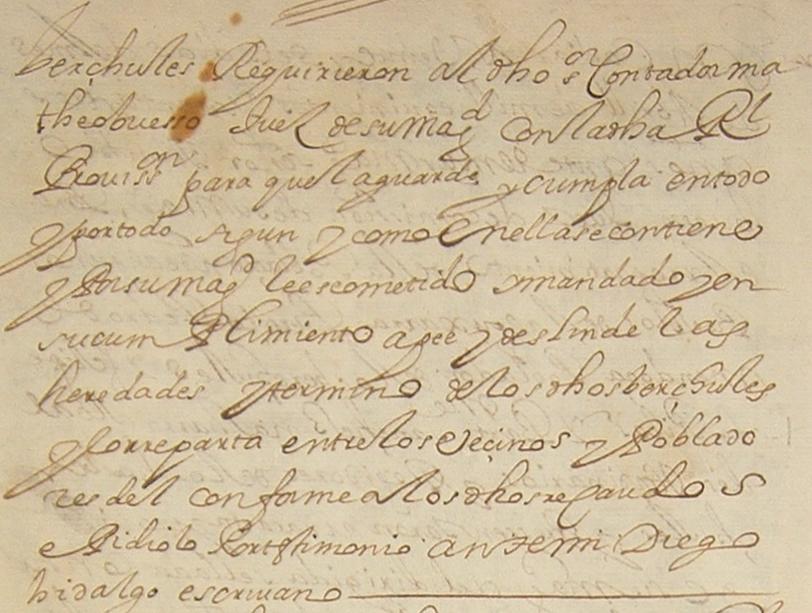 berchules Requirieron al dho sor Contador ma
theo buesso Juez de su Magd con la dha Rl
Provisson para que la guarde y cumpla en todo
y por todo segun y como en ella se contiene
y Por su magd le es cometido y mandado y en
su cumPlimiento apee y deslinde las
heredades y termino de los dhos berchules
y lo rreparta entre los Vecinos y Poblado
res del conforme a los dhos rrecaudos
e Pidiolo Por testimonio ante mi Diego
hidalgo escrivano